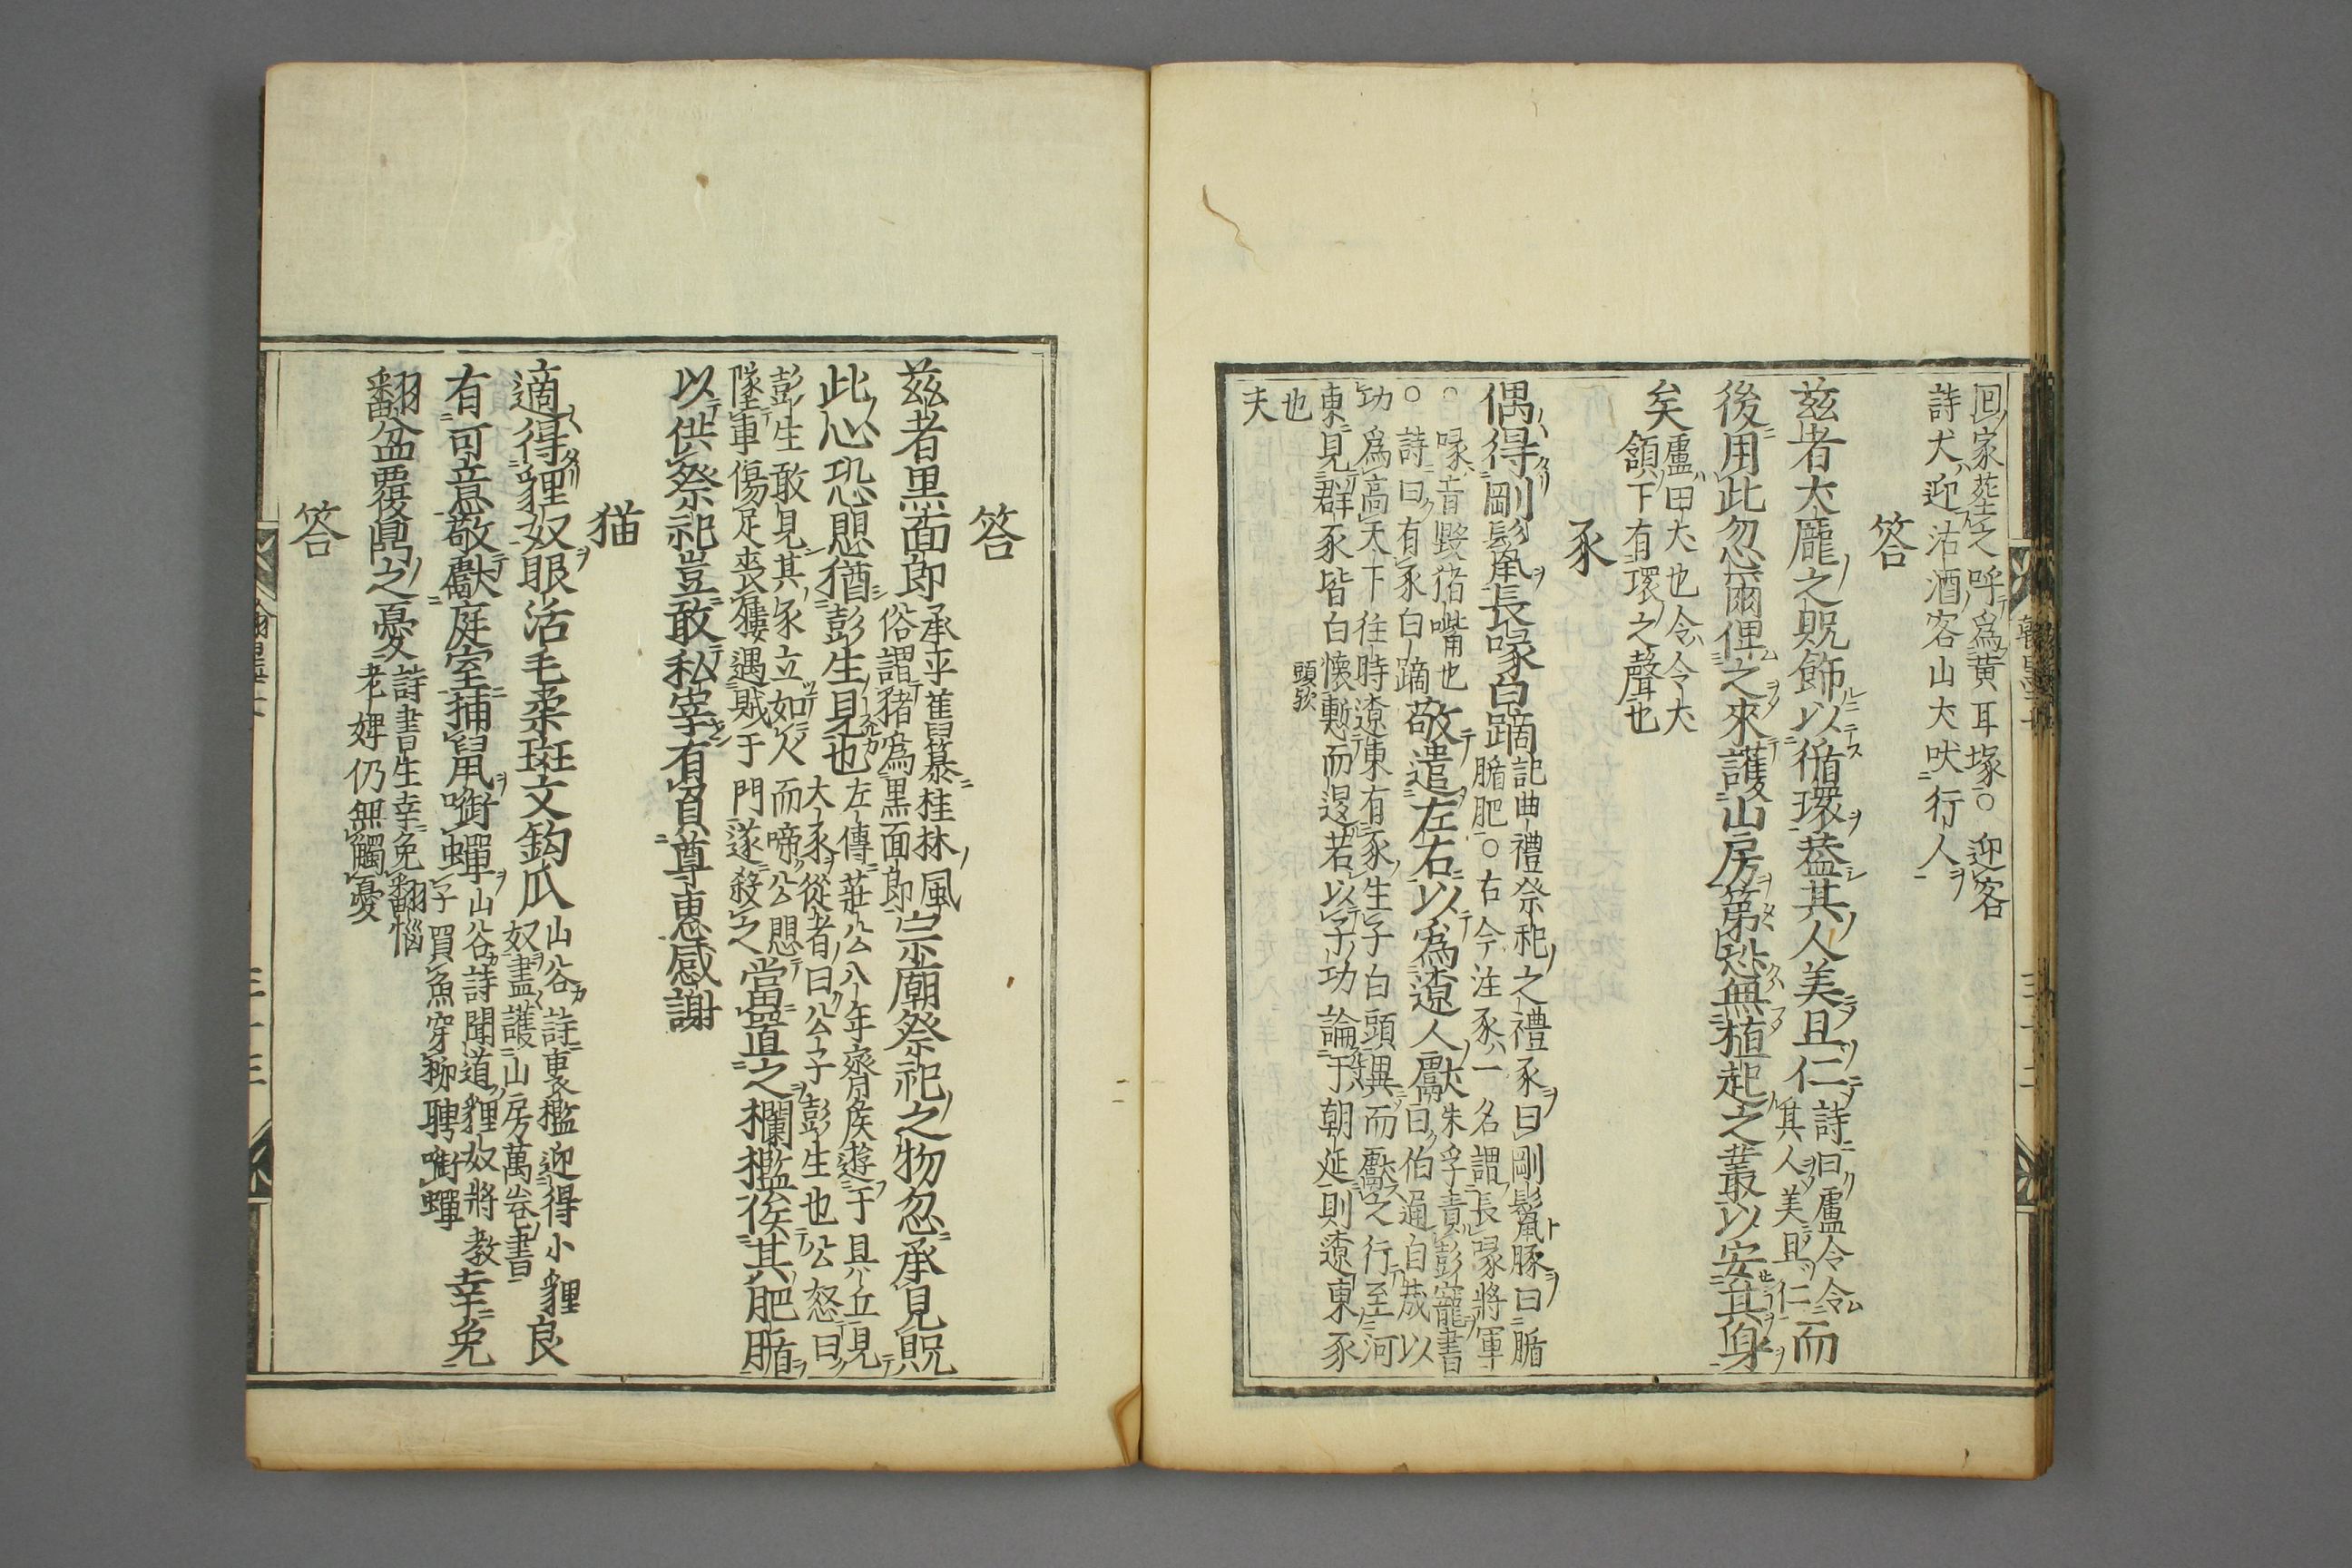 囘家葬之呼爲黄耳塚○迎客
詩犬迎沽酒客山犬吠行人
答
茲者犬龐之貺飾以循環葢其人美且仁詩曰盧令令
其人美且仁而
後用此忽爾俾之來護山房第愁無植起之叢以安其身
矣盧田犬也令令犬
頷下有環之聲也
豕
偶得剛鬣長喙白蹢記曲禮祭祀之禮豕曰剛鬣豚曰腯
腯肥○右今注豕一名謂長喙將軍
○喙音毀猪嘴也
○詩曰有豕白蹢敬遣左右以爲遼人獻朱孚責彭寵書
曰伯通自茂以
功爲高天下往時遼東有豕生子白頭異而獻之行至河
東見群豕皆白懷慙而還若以子功論于朝延則遼東豕
頭欤
也
夫
答
茲者黒面郎承平舊纂桂林風
俗謂豬爲黒面郎宗廟祭祀之物忽承見貺
此心恐愳猶彭生見也左傳莊公八年齊侯遊于具丘見
大豕從者曰公子彭生也公怒曰
彭生敢見其豕立如人而啼公愳
墜車傷足喪屨遇賊于門遂殺之當置之欄檻俟其肥腯
以供祭祀豈敢私宰有負尊惠感謝
猫
適得貍奴眼活毛柔斑文鈎爪山谷詩裹檻迎得小貍
奴盡護山房萬卷書良
有可意敬獻庭室捕鼠啣蟬山谷詩聞道貍奴將教
子買魚穿桺聘啣蟬幸免
翻盆覆鼎之憂詩書生幸免翻惱
老婢仍無觸憂
答